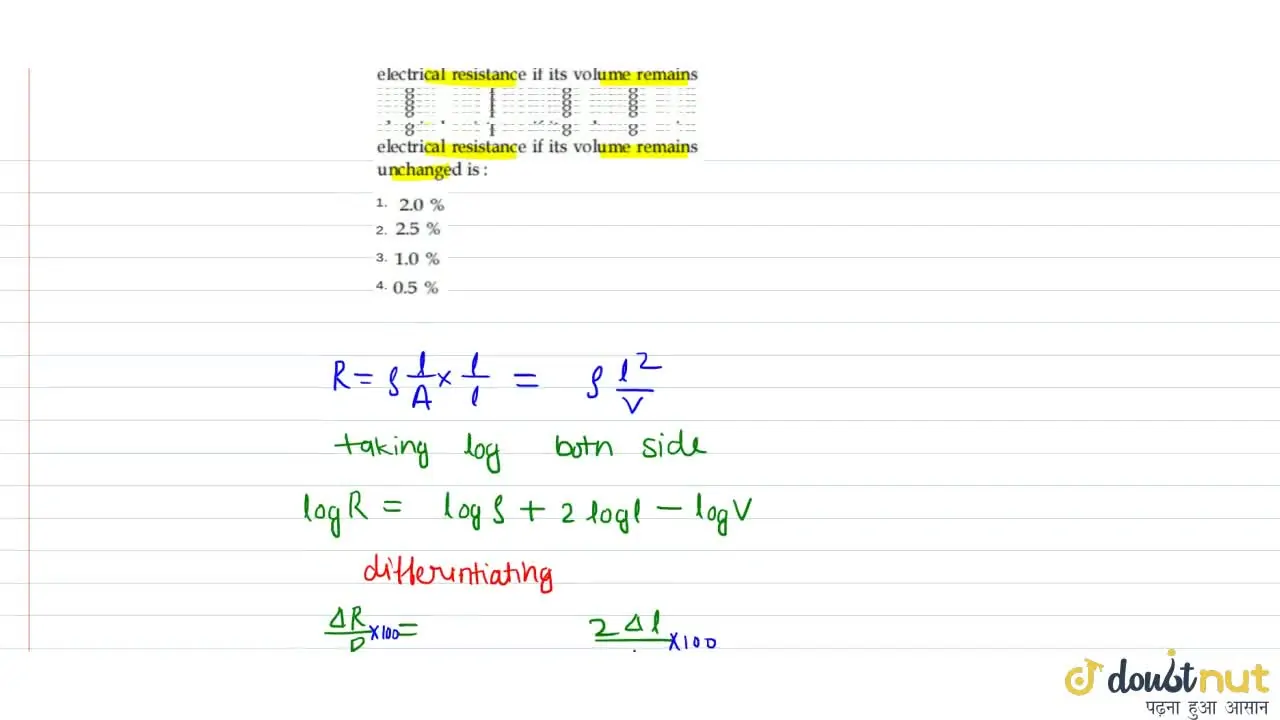 electrical resistance if its volume remains
electrical resistance if its volume remains
unchanged is :
1. 2.0 %
2. 2.5 %
3. 1.0 %
4. 0.5 %
R = ρ l/A × l/l = ρ l²/V
taking log both side
log R = log ρ + 2 log l − log V
differentiating
ΔR/R ×100 = 2 Δl ×100
doubtnut
पढ़ना हुआ आसान